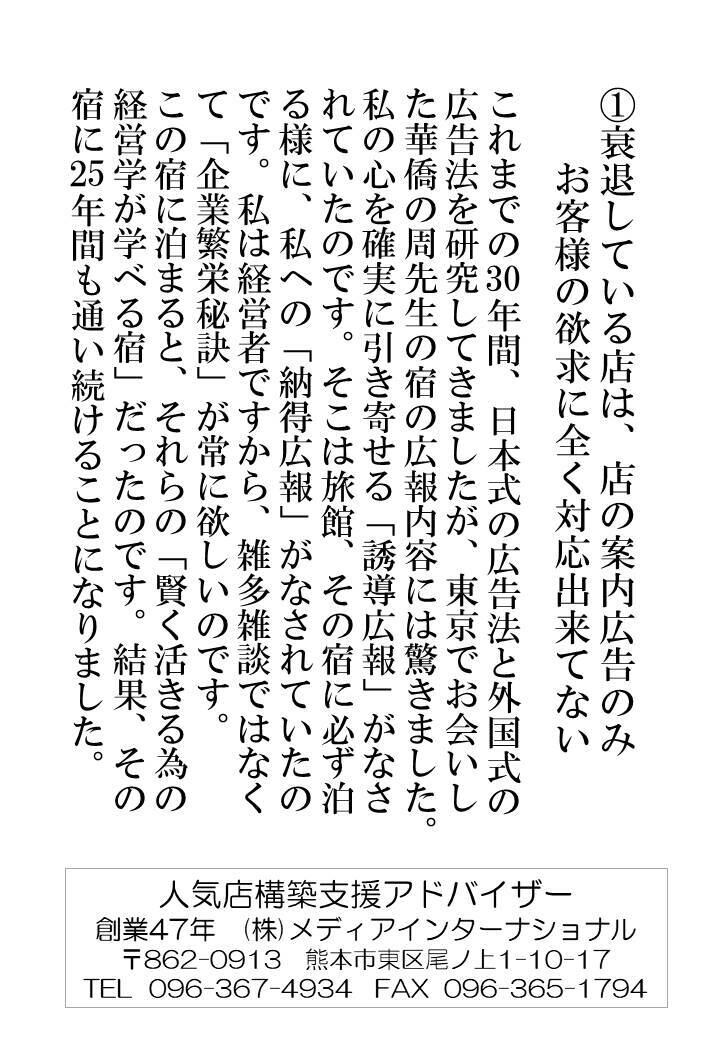 ①衰退している店は、店の案内広告のみ
お客様の欲求に全く対応出来てない
これまでの30年間、日本式の広告法と外国式の
広告法を研究してきましたが、東京でお会いし
た華僑の周先生の宿の広報内容には驚きました。
私の心を確実に引き寄せる「誘導広報」がなさ
れていたのです。そこは旅館、その宿に必ず泊
る様に、私への「納得広報」がなされていたの
です。私は経営者ですから、雑多雑談ではなく
て「企業繁栄秘訣」が常に欲しいのです。
この宿に泊まると、それらの「賢く活きる為の
経営学が学べる宿」だったのです。結果、その
宿に25年間も通い続けることになりました。
人気店構築支援アドバイザー
創業47年 (株)メディアインターナショナル
〒862-0913 熊本市東区尾ノ上1-10-17
TEL 096-367-4934 FAX 096-365-1794